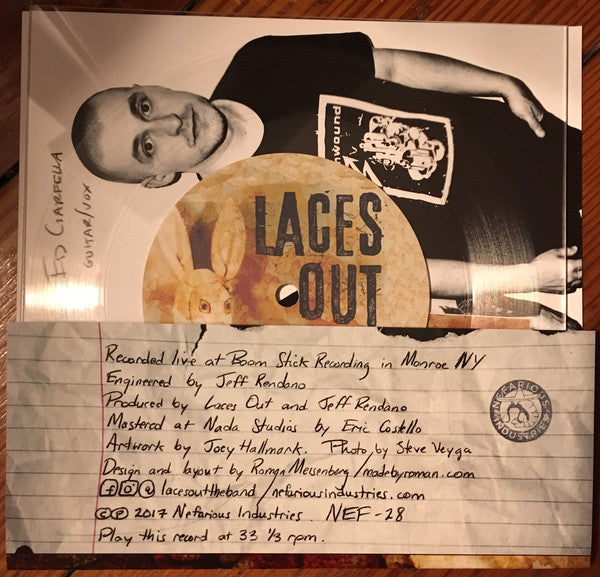 ED CIARFELLA
GUITAR/VOX
unwound
LACES
OUT
Recorded live at Boom Stick Recording in Monroe NY
Engineered by Jeff Rendano
Produced by Laces Out and Jeff Rendano
Mastered at Nada Studios by Eric Costello
Artwork by Joey Hallmark. Photo by Steve Veyga
Design and layout by Roman Meisenberg/madebyroman.com
lacesouttheband/nefariousindustries.com
©℗ 2017 Nefarious Industries. NEF-28
Play this record at 33 1/3 rpm.
NEFARIOUS
INDUSTRIES